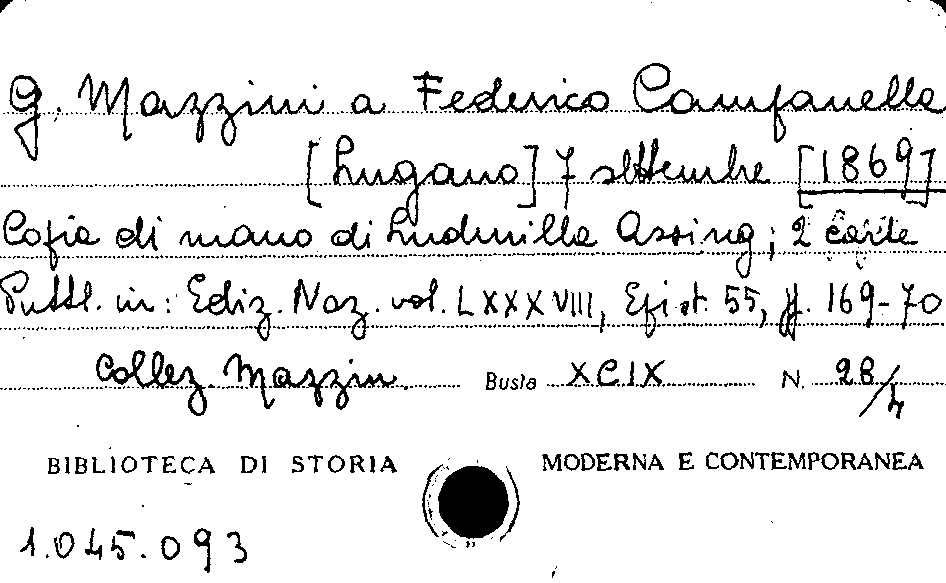 G. Mazzini a Federico Campanella
[Lugano] 7 settembre [1869]
Copia di mano di Ludmilla Assing; 2 carte
Pubbl. in: Ediz. Naz. vol. LXXXVIII, Epist. 55, pp. 169-70
Collez. Mazzin. Busta XCIX N. 28/4
BIBLIOTECA DI STORIA MODERNA E CONTEMPORANEA
1.045.093